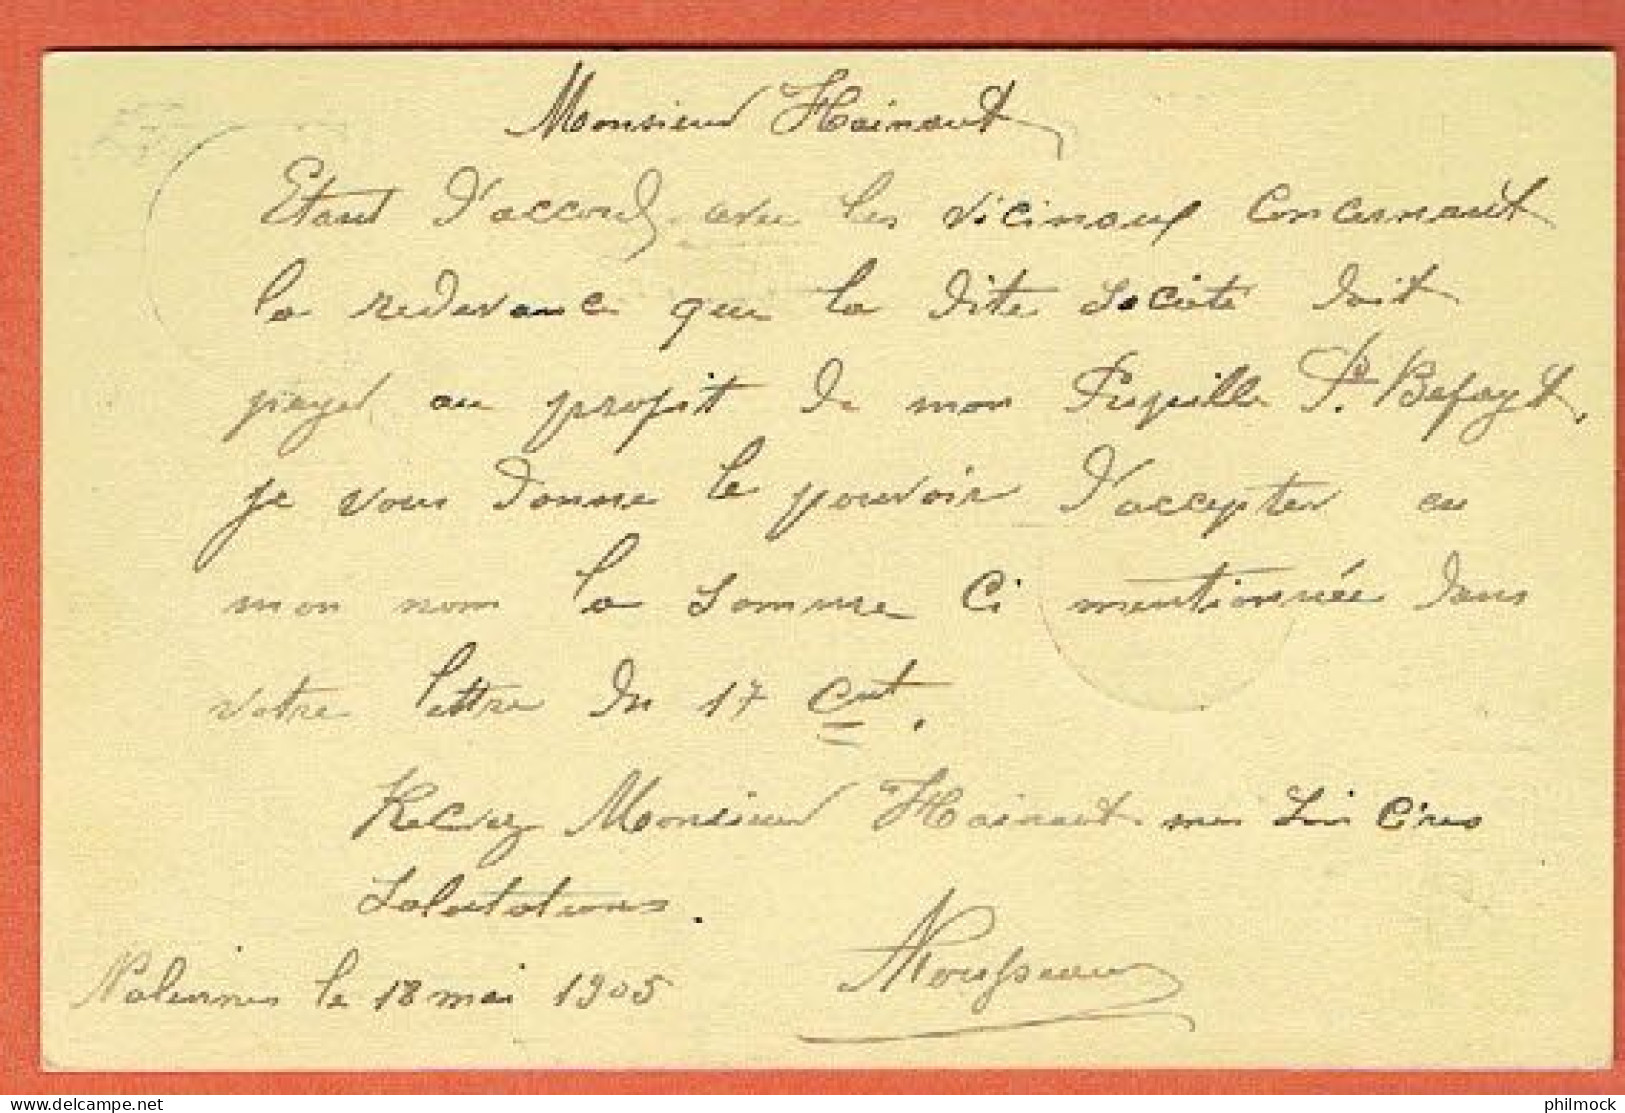 Monsieur Hainaut
Etant d'accord avec les vicinaux concernant
la redevance que la dite société doit
payer au profit de mon Pupille Befayt,
je vous donne le pouvoir d'accepter en
mon nom la somme ci mentionnée dans
votre lettre du 17 ct.
Recevez Monsieur Hainaut mes
Salutations.
le 18 mai 1905
delcampe.net
philmock